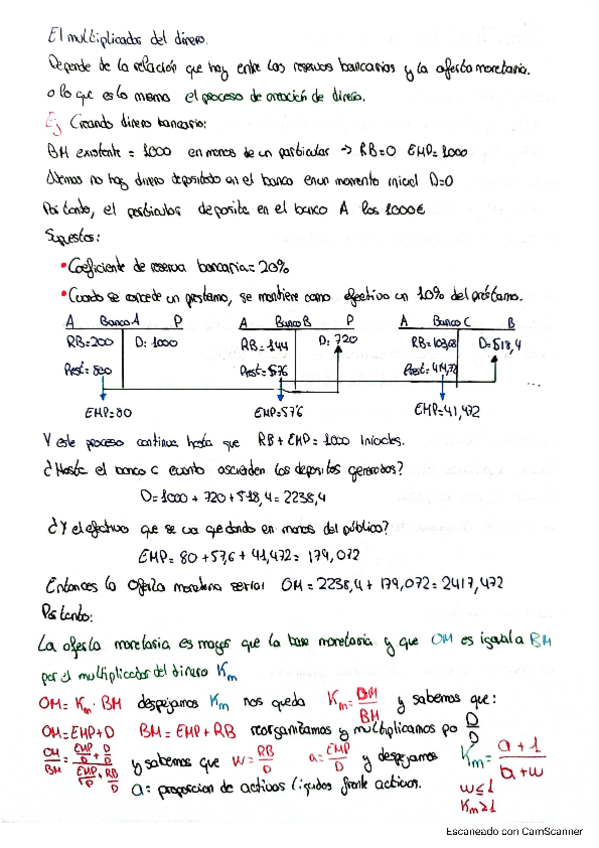 El multiplicador del dinero.
Depende de la relación que hay entre las reservas bancarias y la oferta monetaria.
o lo que es lo mismo el proceso de creación de dinero.
Ej Creando dinero bancario:
BM existente = 1000 en manos de un particular → RB=0 EMP=1000
Además no hay dinero depositado en el banco en un momento inicial D=0
Por tanto, el particular deposita en el banco A los 1000€
Supuestos:
• Coeficiente de reserva bancaria = 20%
• Cuando se concede un préstamo, se mantiene como efectivo un 10% del préstamo.
A Banco A P A Banco B P A Banco C B
RB=200 D: 1000 RB=144 D: 720 RB=103,68 D=518,4
Prest=800 Prest=576 Prest=414,72 ...
EMP=80 EMP=57'6 EMP=41,472
Y este proceso continua hasta que RB+EMP=1000 iniciales.
¿Hasta el banco C cuanto ascienden los depósitos generados?
D=1000+720+518,4=2238,4
¿Y el efectivo que se va quedando en manos del público?
EMP=80+57,6+41,472=179,072
Entonces la oferta monetaria sería: OM=2238,4+179,072=2417,472
Por tanto:
La oferta monetaria es mayor que la base monetaria y que OM es igual a BM
por el multiplicador del dinero Km
OM=Km·BM despejamos Km nos queda Km=OM/BM y sabemos que:
OM=EMP+D BM=EMP+RB reorganizamos y multiplicamos po D/D
OM/BM = y sabemos que w=RB/D a=EMP/D y despejamos Km=a+1/a+w
a: proporcion de activos líquidos frente activos. w≤1
Km≥1
Escaneado con CamScanner